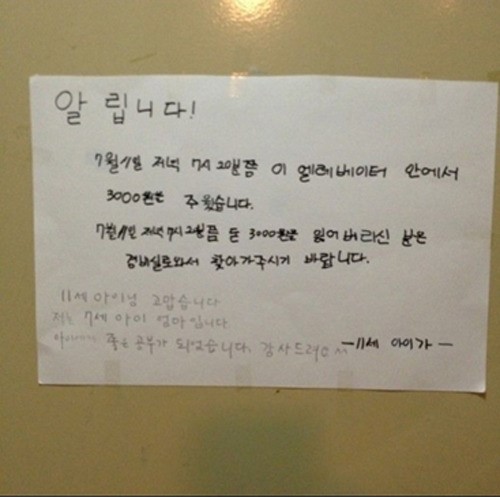 알 립니다!
7월 11일 저녁 7시 20분쯤 이 엘레베이터 안에서
3000원을 주웠습니다.
7월 11일 저녁 7시 20분쯤 돈 3000원을 잃어버리신 분은
경비실로와서 찾아가주시기 바랍니다.
11세 아이님 고맙습니다
저는 7세 아이 엄마입니다
좋은 공부가 되었습니다. 감사드려요 ^^
-11세 아이가-